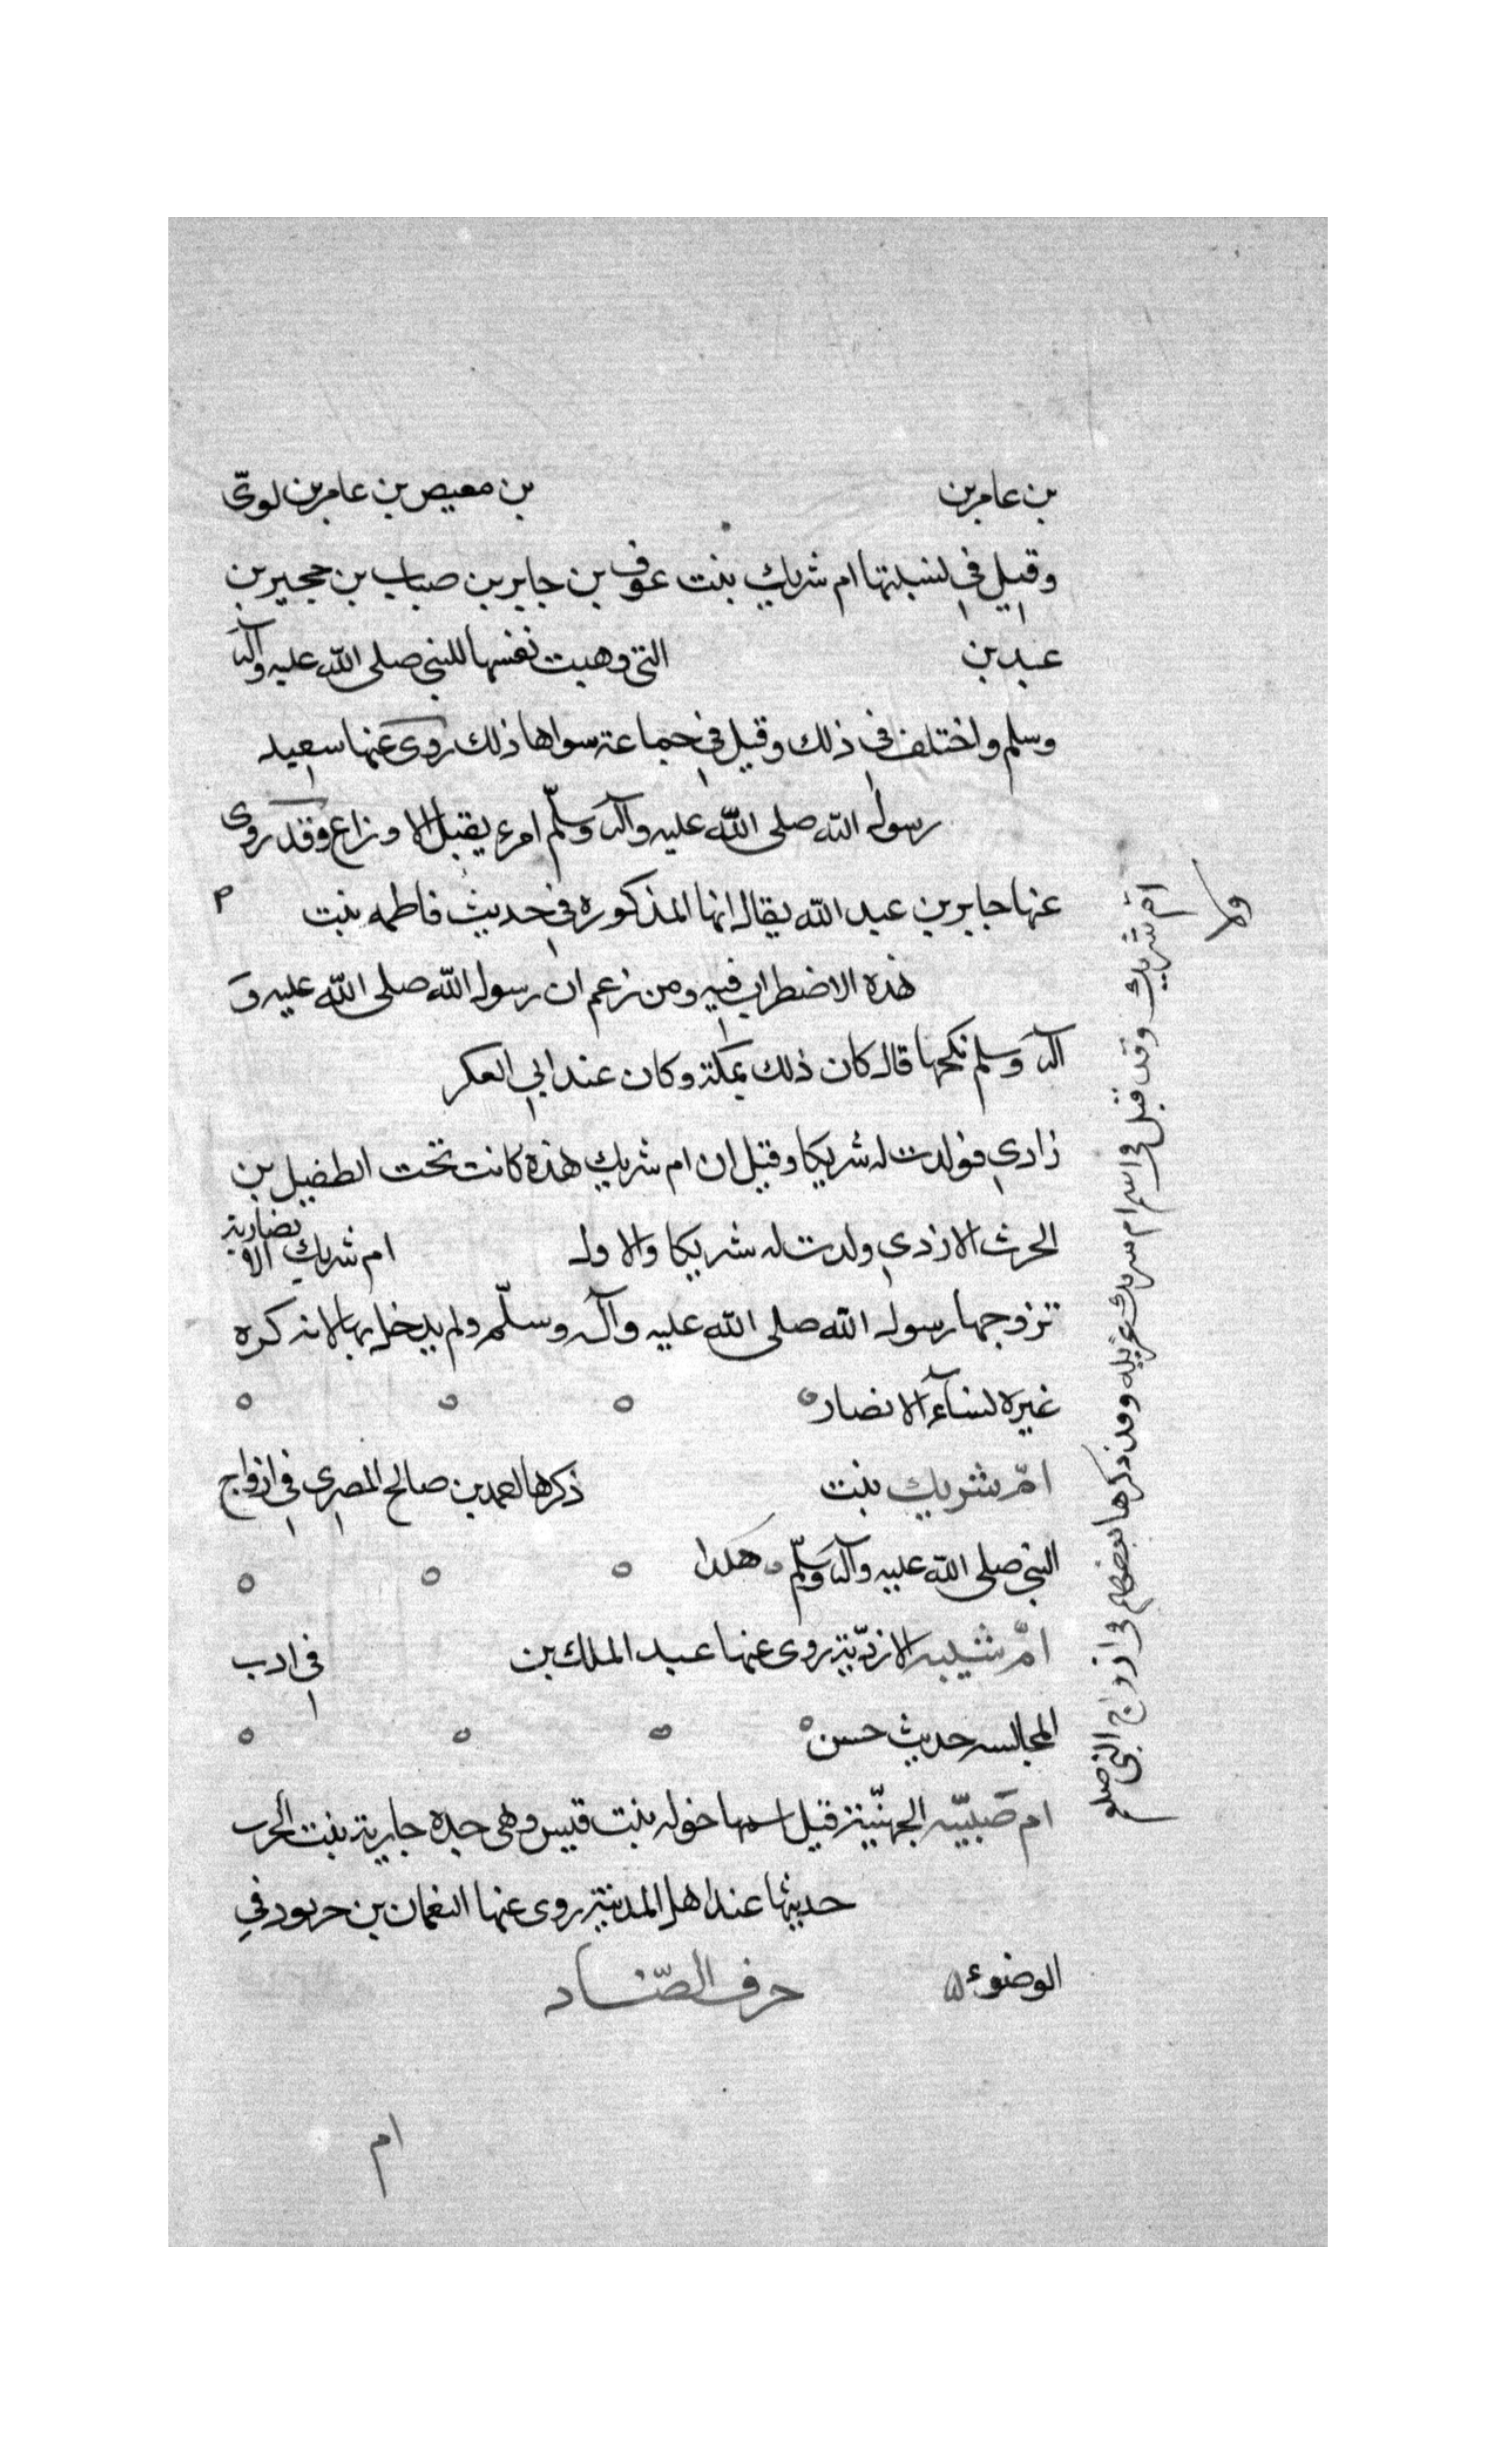 بن عامر بن بن معيص بن عامر بن لوىّ
وقيل فى نسبتها ام شريك بنت عوف بن جابر بن صباب بن حجير بن
عبد بن التى وهبت نفسها للنبى صلى الله عليه وآله
وسلم واختلف فى ذلك وقيل فى جماعة سواها ذلك روى عنها سعيد
رسول الله صلى الله عليه وآله وسلّم امر بقتل الاوزاع وقد روى
عنها جابر بن عبد الله يقال انها المذكوره فى حديث فاطمه بنت
هذه الاضطراب فيه ومن زعم ان رسول الله صلى الله عليه و
آله وسلم نكحها قال كان ذلك بمكة وكان عند ابى العكر
زادى فولدت له شريكا وقيل ان ام شريك هذه كانت تحت الطفيل بن
الحرث الازدى ولدت له شريكا والاول ام شريك الانصارية
تزوجها رسول الله صلى الله عليه وآله وسلّم ولم يدخل بها لانه كره
غيرة نسآء الانصار
امّ شريك بنت ذكرها احمد بن صالح المصرى فى ازواج
النبى صلى الله عليه وآله وسلّم هكذا
امّ شيبه الازديّة روى عنها عبد الملك بن فى ادب
المجالسه حديث حسن
ام صَبيّه الجهنيّة قيل اسمها خوله بنت قيس وهى جده خارجة بنت الحرث
حديثها عند اهل المدينة روى عنها النعمان بن خربود فى
الوضوء
حرف الضّاد
ام
ام شريك وقد قيل فى اسم ام شريك غزيله وقد ذكرها بعضهم فى ازواج النبى صلعم